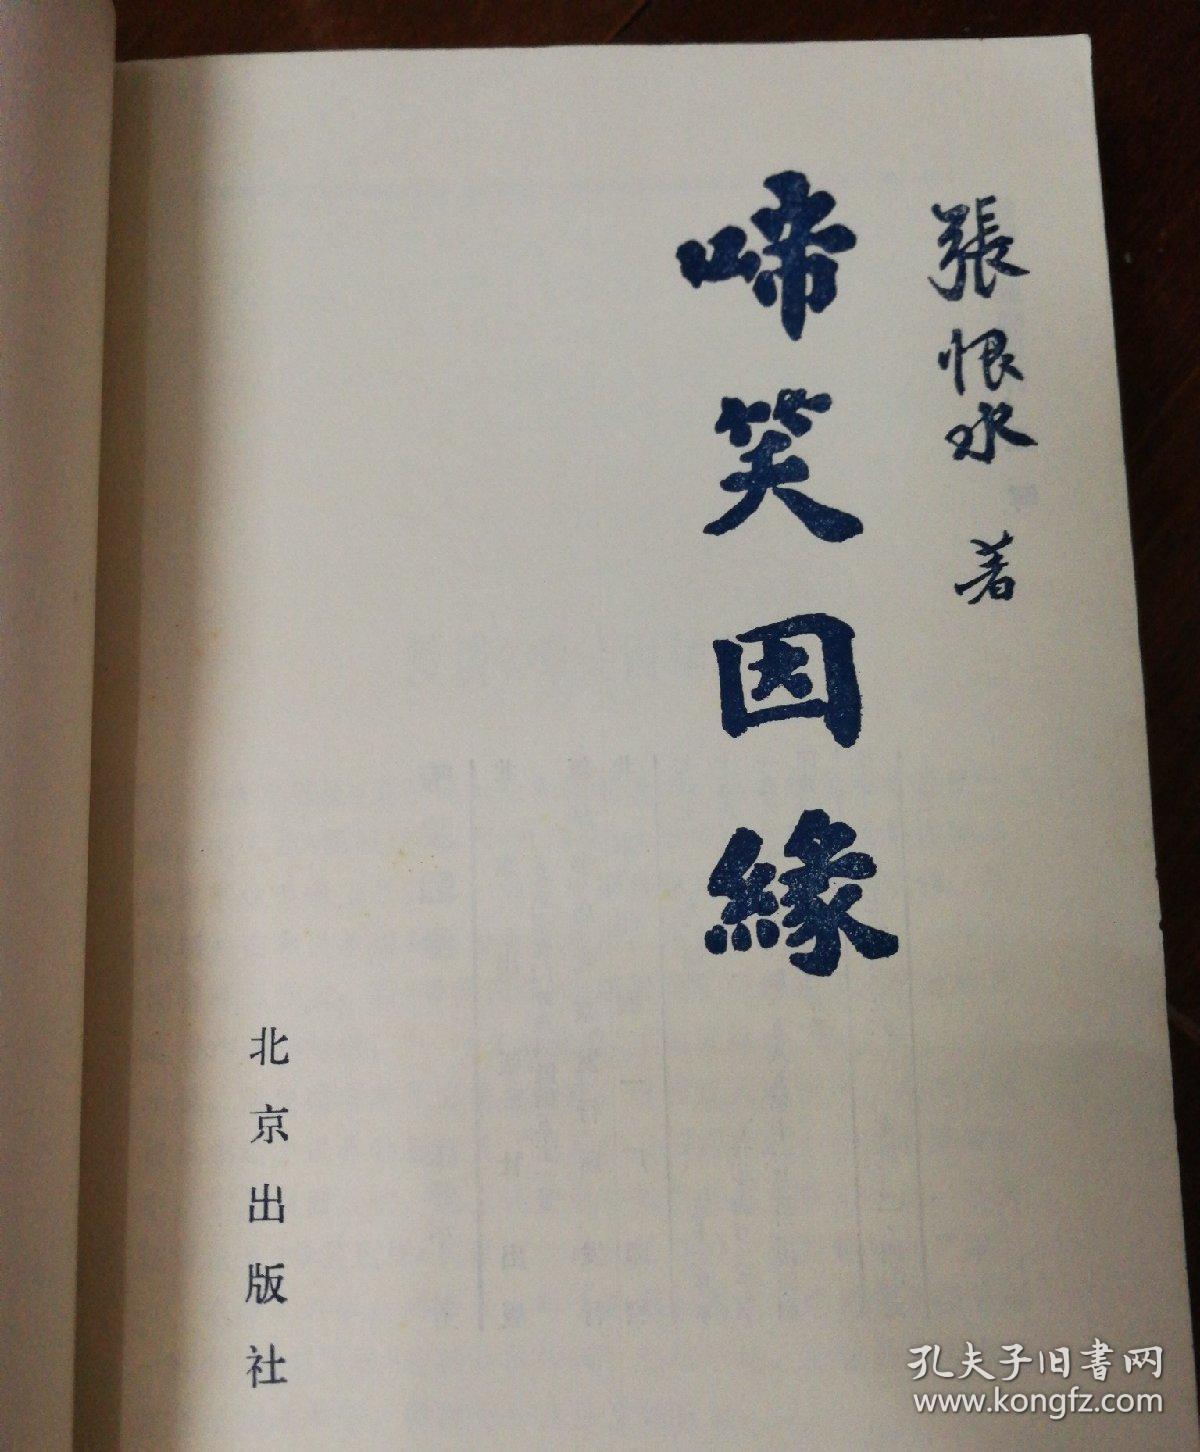 張恨水 著
啼笑因緣
北京出版社
孔夫子旧書网
www.kongfz.com